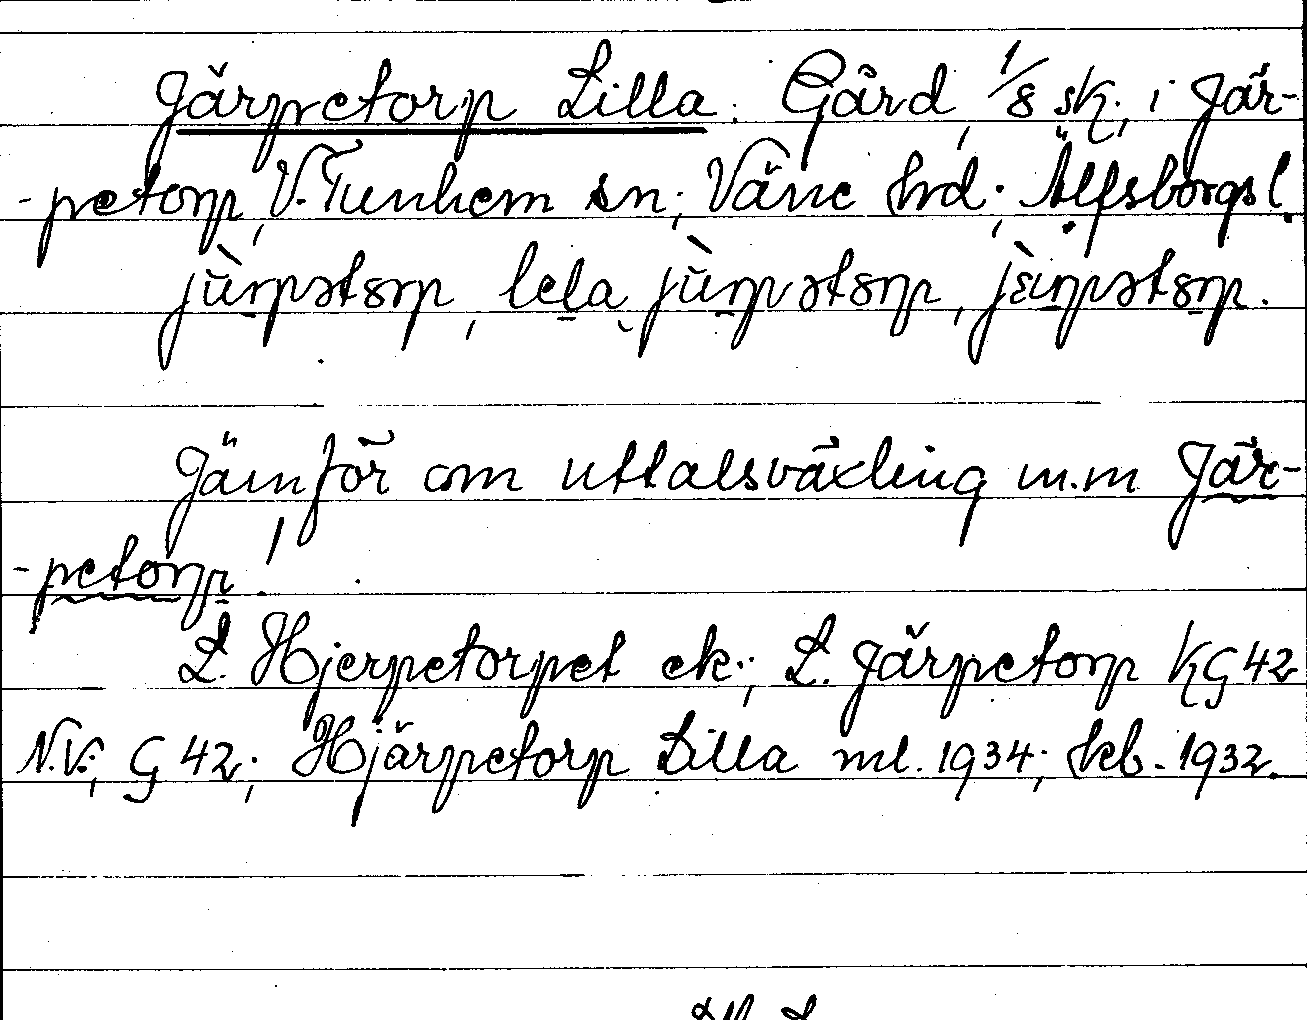 Järpetorp Lilla. Gård, 1/8 sk., i Jär-
-petorp, V. Tunhem sn; Väne hd; Älfsborgs l.
Jämför om uttalsväxling m.m Jär-
-petorp!
L. Hjerpetorpet ek.; L. Järpetorp KG 42
N.V.; G 42; Hjärpetorp Lilla ml. 1934; kb. 1932.